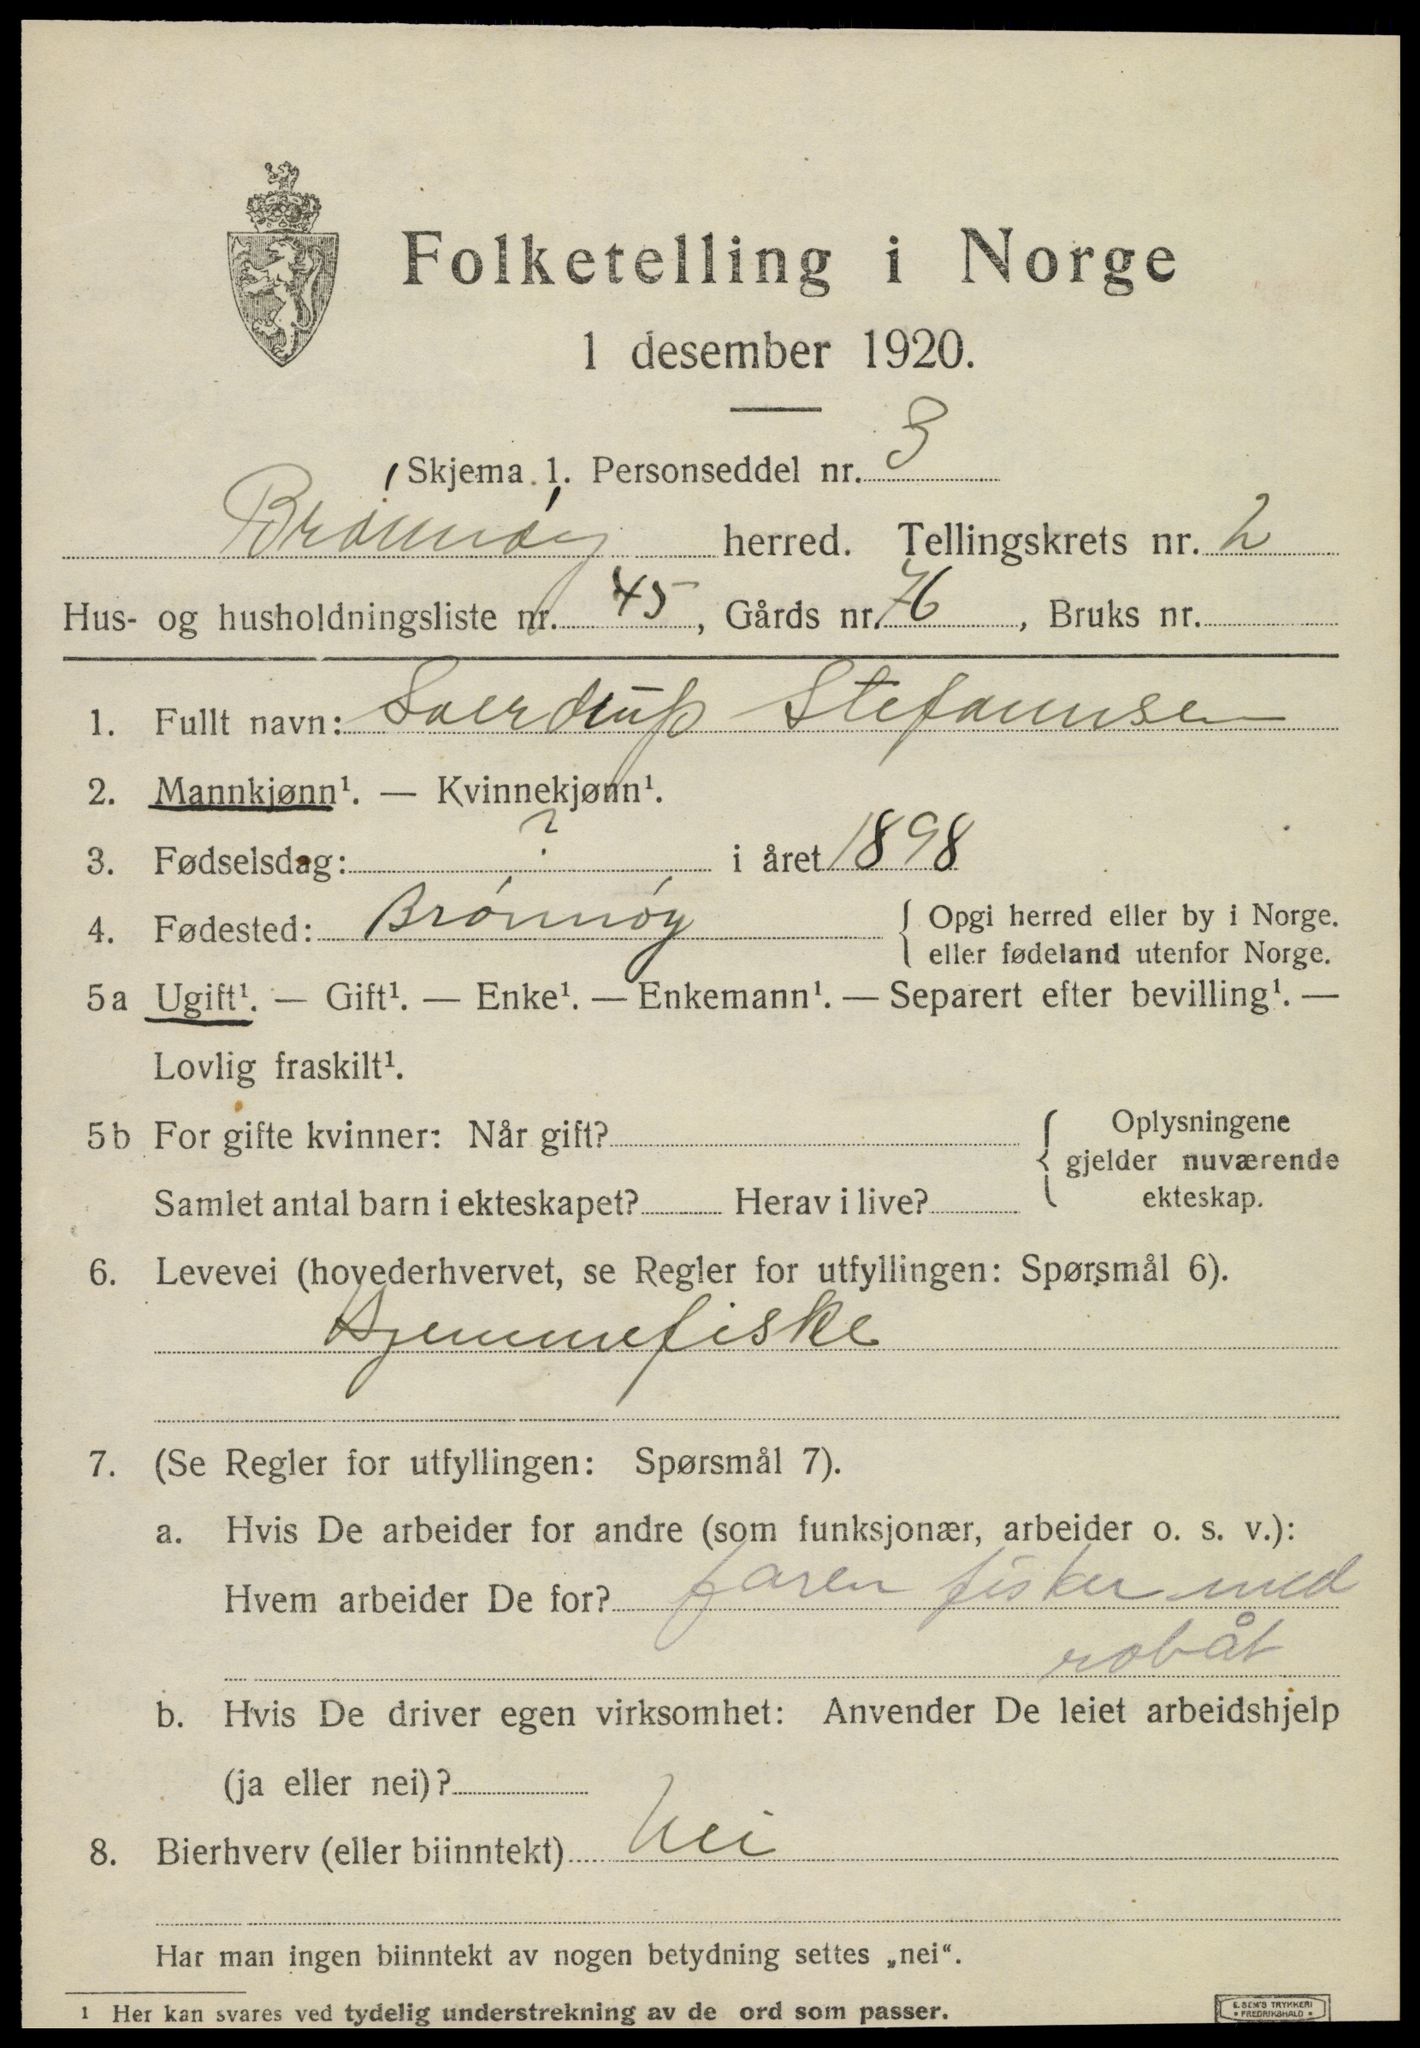 Folketelling i Norge
1 desember 1920.
Skjema 1. Personseddel nr. 3
Brónnóy herred. Tellingskrets nr. 2
Hus- og husholdningsliste nr. 45, Gårds nr. 76, Bruks nr.
1. Fullt navn: Sverdrup Stefannsen
2. Mannkjønn¹. — Kvinnekjønn¹.
3. Fødselsdag: ? i året 1898
4. Fødested: Brónnóy { Opgi herred eller by i Norge.
eller fødeland utenfor Norge.
5a Ugift¹. — Gift¹. — Enke¹. — Enkemann¹. — Separert efter bevilling¹. —
Lovlig fraskilt¹.
5b For gifte kvinner: Når gift? { Oplysningene
gjelder nuværende
Samlet antal barn i ekteskapet? Herav i live? ekteskap.
6. Levevei (hovederhvervet, se Regler for utfyllingen: Spørsmål 6).
Hjemmefiske
7. (Se Regler for utfyllingen: Spørsmål 7).
a. Hvis De arbeider for andre (som funksjonær, arbeider o. s. v.):
Hvem arbeider De for? faren fisker med
robåt
b. Hvis De driver egen virksomhet: Anvender De leiet arbeidshjelp
(ja eller nei)?
8. Bierhverv (eller biinntekt) Nei
Har man ingen biinntekt av nogen betydning settes „nei“.
1 Her kan svares ved tydelig understrekning av de ord som passer.
E. SEM'S TRYKKERI
• FREDRIKSHALD •